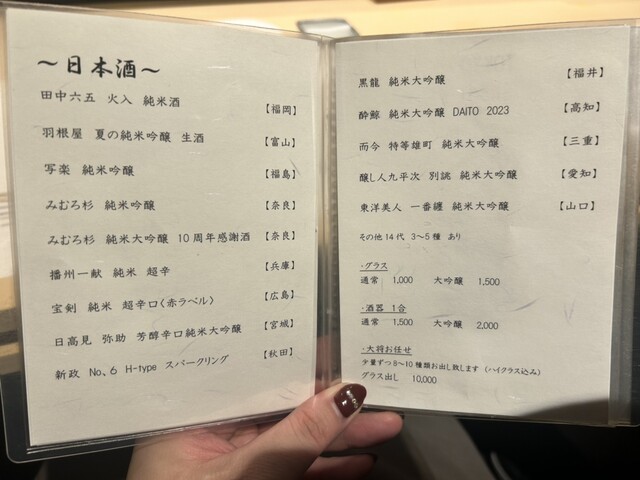 ～日本酒～
田中六五 火入 純米酒 【福岡】
羽根屋 夏の純米吟醸 生酒 【富山】
写楽 純米吟醸 【福島】
みむろ杉 純米吟醸 【奈良】
みむろ杉 純米大吟醸 10周年感謝酒 【奈良】
播州一献 純米 超辛 【兵庫】
宝剣 純米 超辛口〈赤ラベル〉 【広島】
日高見 弥助 芳醇辛口純米大吟醸 【宮城】
新政 No、6 H-type スパークリング 【秋田】
黒龍 純米大吟醸 【福井】
酔鯨 純米大吟醸 DAITO 2023 【高知】
而今 特等雄町 純米大吟醸 【三重】
醸し人九平次 別誂 純米大吟醸 【愛知】
東洋美人 一番纏 純米大吟醸 【山口】
その他14代 3～5種 あり
・グラス
通常 1,000 大吟醸 1,500
・酒器 1合
通常 1,500 大吟醸 2,000
・大将お任せ
少量ずつ8～10種類お出し致します (ハイグラス込み)
グラス出し 10,000